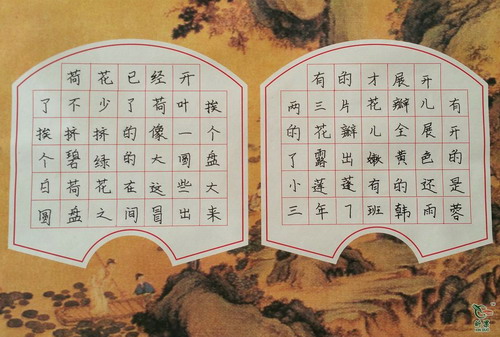 荷花已经开
了不少了荷叶挨
挨挤挤的像一个
个碧绿的大圆盘
白荷花在这些大
圆盘之间冒出来
有的才展开
两三片花瓣儿有
的花瓣儿全展开
了露出嫩黄色的
小莲蓬有的还是
三年7班韩雨蓉